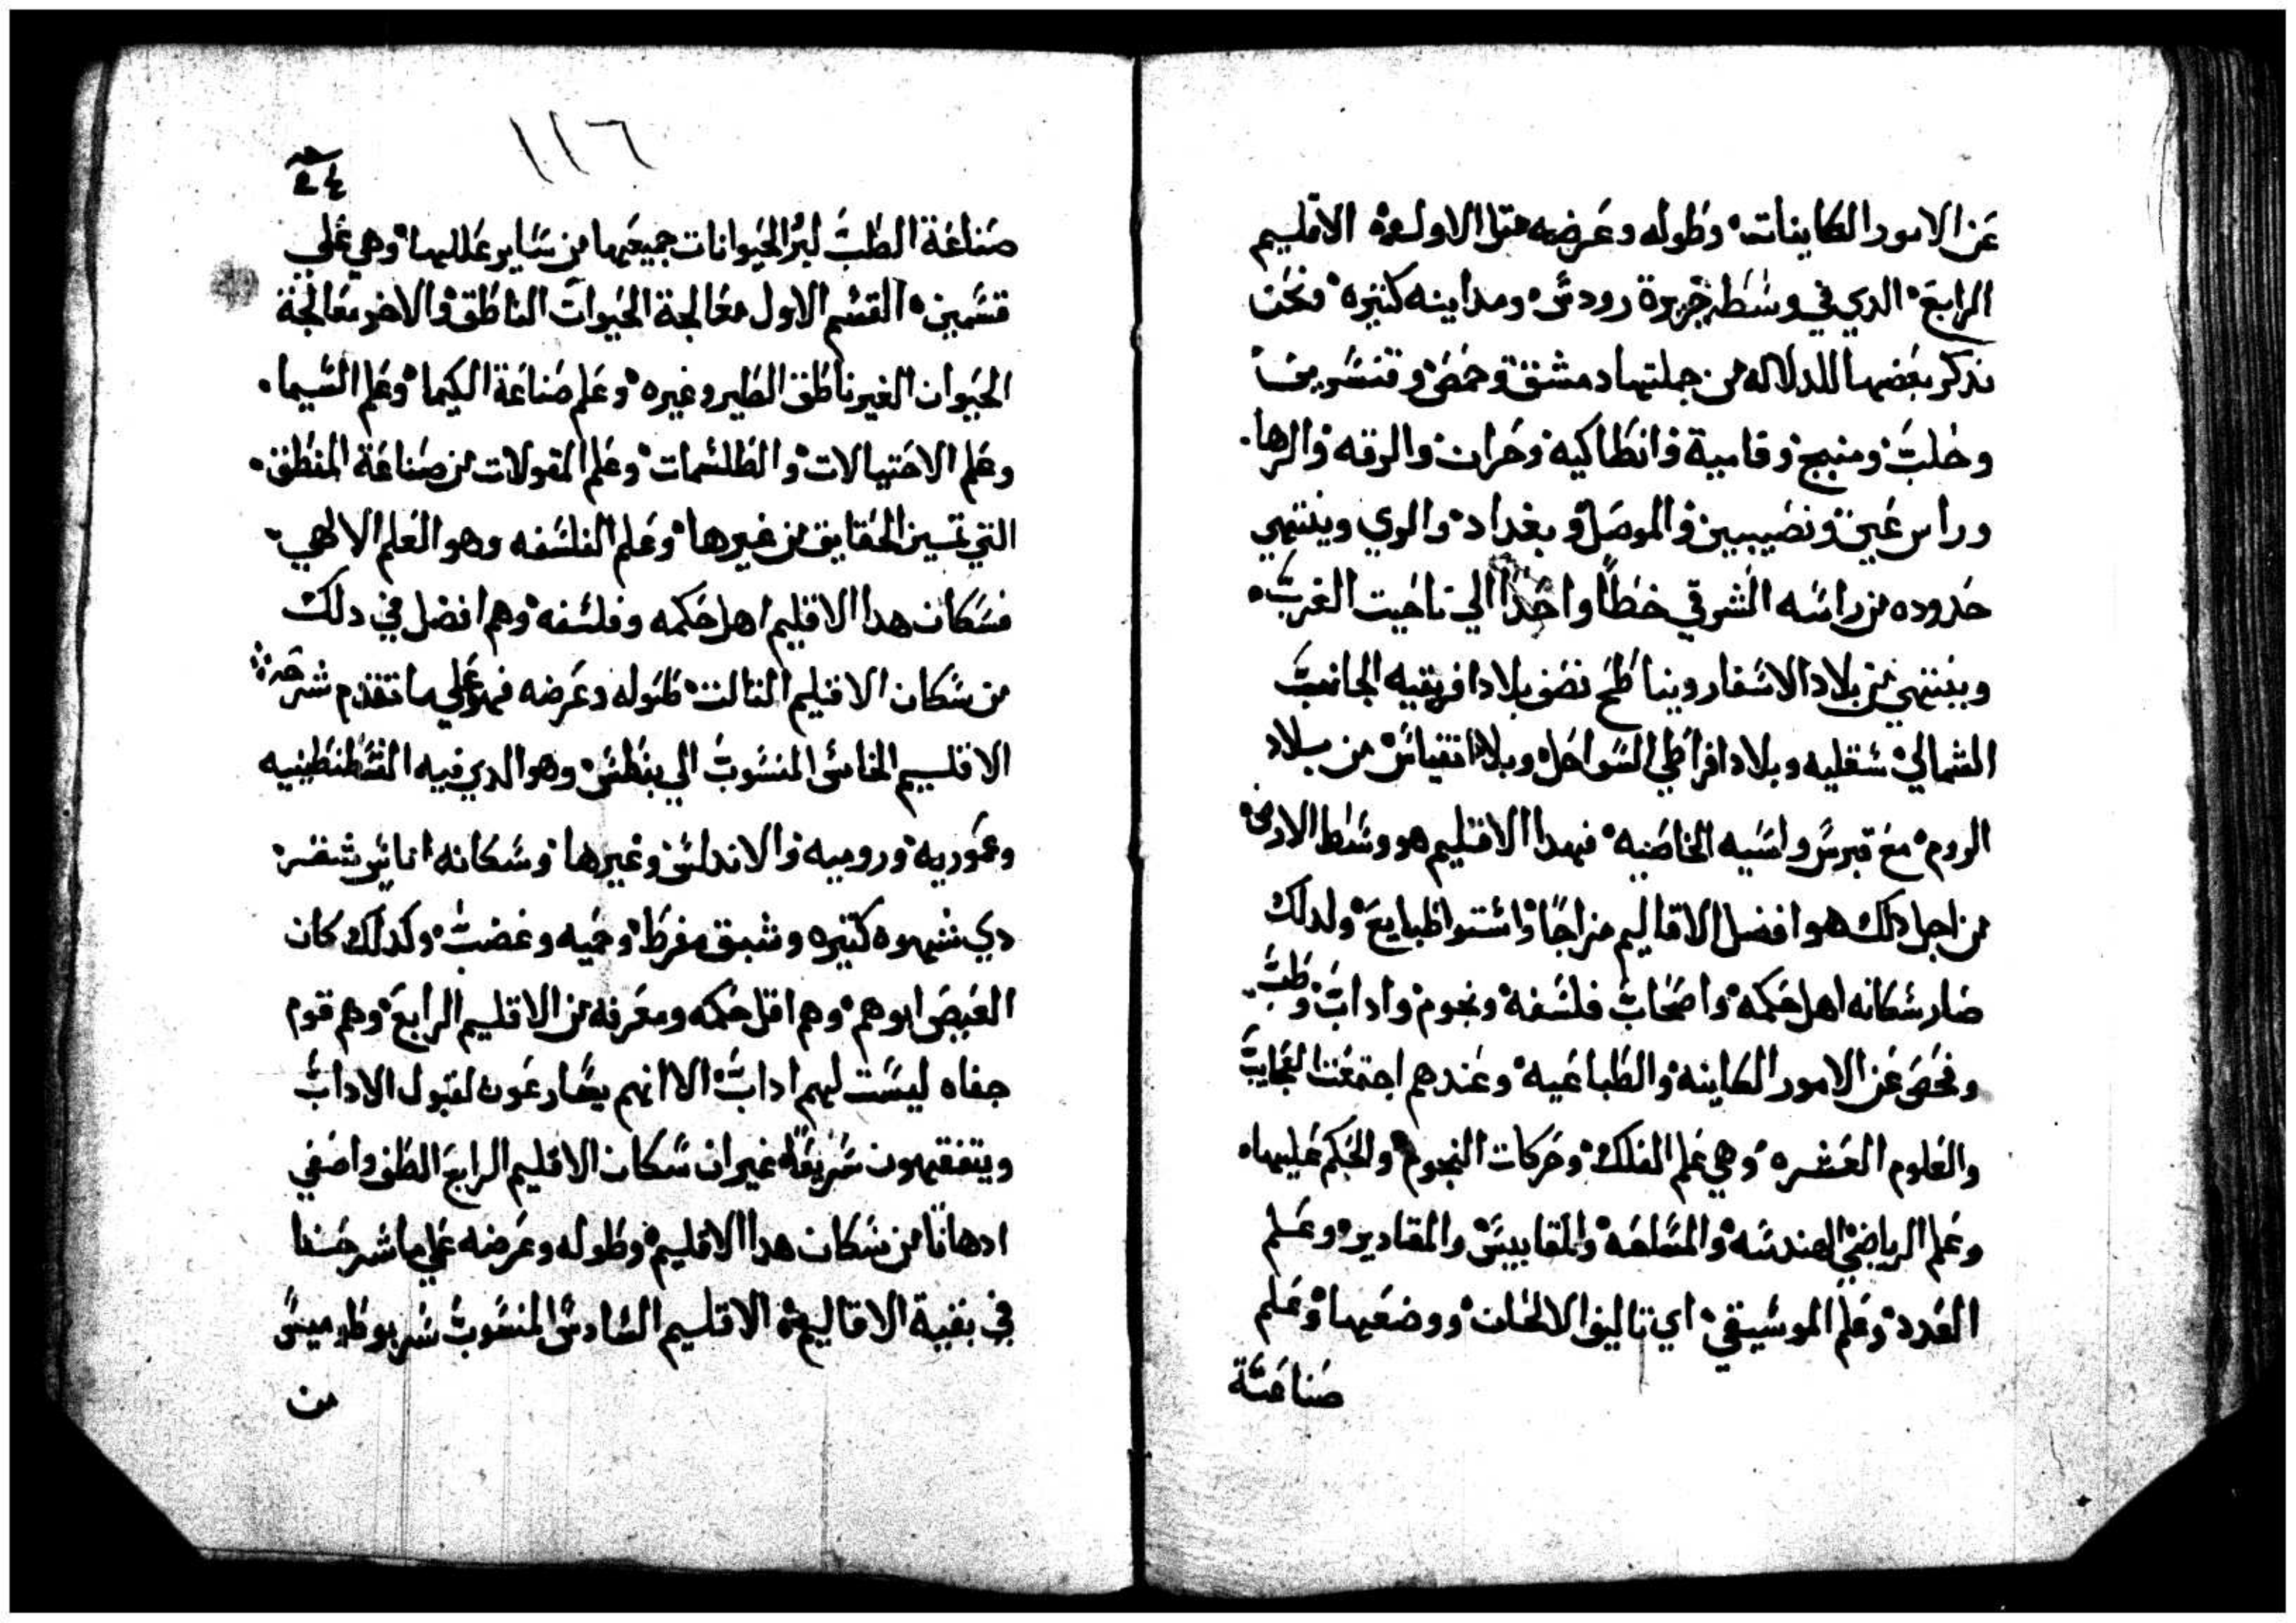 عن الامور الكاينات وطوله وعرضه متل الاول الاقليم
الرابع الدي في وسط جزيرة رودس ومداينه كتيره ونحن
ندكر بعضها للدلاله من جملتها دمشق وحمص وقنسرين
وحلب ومنبج وفامية وانطاكيه وحران والرقه والرها
وراس عين ونصيبين والموصل وبغداد والري وينتهي
حدوده من راسه الشرقي خطا واحدا الي ناحيت الغرب
وينتهي من بلاد الاسفار ويناطح نصف بلاد افريقيه الجانب
الشمالي سقليه وبلاد اقراطي السواحل وبلاد من بلاد
الروم مع قبرس واسيه الخاصيه فهدا الاقليم هو وسط الارض
من اجل دلك هو افضل الاقاليم مزاجا واستوا طبايع ولدلك
صار سكانه اهل حكمه واصحاب فلسفه ونجوم واداب وطب
وفحص عن الامور الكاينه والطباعيه وعندهم اجتمعت العجايب
والعلوم العشره وهي علم الفلك وحركات النجوم والحكم عليها
وعلم الرياضي الهندسه والمقاييس والمقادير وعلم
العدد وعلم الموسيقي اي تاليف الالحان ووضعها وعلم
صناعة
١١٦
صناعة الطب لبر الحيوانات جميعها من ساير عللها وهي علي
قسمين القسم الاول معالجة الحيوان الناطق والاخر معالجة
الحيوان الغير ناطق الطير وغيره وعلم صناعة الكيما وعلم السيما
وعلم الاحتيالات والطلسمات وعلم المقولات من صناعة المنطق
التي تميز الحقايق من غيرها وعلم الفلسفه وهو العلم الالهي
فسكان هدا الاقليم اهل حكمه وفلسفه وهم افضل في دلك
من سكان الاقليم التالت طوله وعرضه فهو علي ما تقدم شرحه
الاقليم الخامس المنسوب الي بنطس وهو الدي فيه القسطنطينيه
وعموريه وروميه والاندلس وغيرها وسكانه اناس شقر
دي شهوه كتيره وشبق مفرط وحميه وغضب وكدلك كان
العيص ابوهم وهم اقل حكمه ومعرفه من الاقليم الرابع وهم قوم
جفاه ليست لهم اداب الا انهم يسارعون لقبول الاداب
ويتفقهون سريعا غير ان سكان الاقليم الرابع الطف واصفي
ادهانا من سكان هدا الاقليم وطوله وعرضه علي ما شرحنا
في بقية الاقاليم الاقليم السادس المنسوب
من